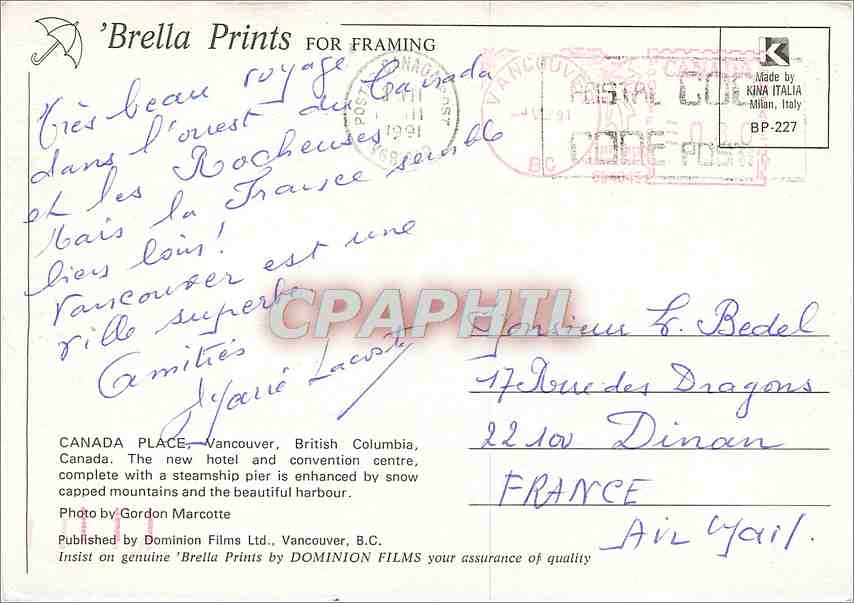 'Brella Prints FOR FRAMING
Très beau voyage
dans l'ouest du Canada
et les Rocheuses
Mais la France semble
bien loin!
Vancouver est une
ville superbe
Amitiés
Marie Lacoste
CANADA
POSTAL POST
1991
VANCOUVER
B C
1991
CANADA
POSTAL CODE
CODE POSTAL
K
Made by
KINA ITALIA
Milan, Italy
BP-227
CPAPHIL
Monsieur Bedel
17 Rue des Dragons
22100 Dinan
FRANCE
Air Mail.
CANADA PLACE, Vancouver, British Columbia,
Canada. The new hotel and convention centre,
complete with a steamship pier is enhanced by snow
capped mountains and the beautiful harbour.
Photo by Gordon Marcotte
Published by Dominion Films Ltd., Vancouver, B.C.
Insist on genuine 'Brella Prints by DOMINION FILMS your assurance of quality